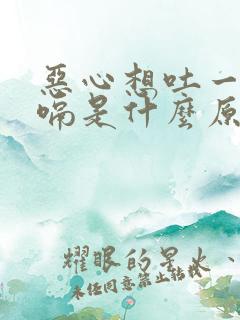 惡心想吐一
嗝是什麼原
耀眼的星火、
未经同意禁止转载